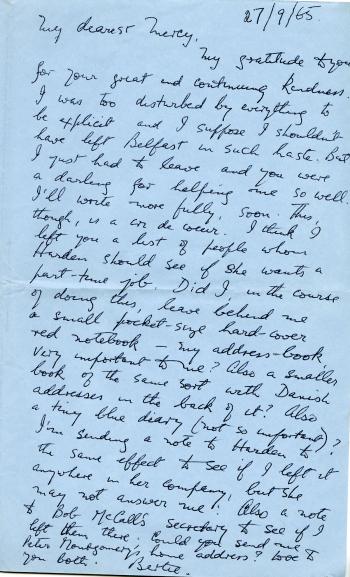 27/9/65.
My dearest Mercy,
My gratitude to you
for your great and continuing kindness.
I was too disturbed by everything to
be explicit and I suppose I shouldn't
have left Belfast in such haste. But
I just had to leave and you were
a darling for helping me so well.
I'll write more fully, soon. This,
though, is a cri de coeur. I think I
left you a list of people whom
Harden should see if she wants a
part-time job. Did I, in the course
of doing this, leave behind me
a small pocket-size hard-cover
red notebook — my address-book,
very important to me? Also a smaller
book of the same sort with Danish
addresses in the back of it? Also
a tiny blue diary (not so important)?
I'm sending a note to Harden to
the same effect to see if I left it
anywhere in her company, but she
may not answer me! Also a note
to Bob McCall's secretary to see if I
left them there. Could you send me
Peter Montgomery's home address? Love to
you both. Bertie.